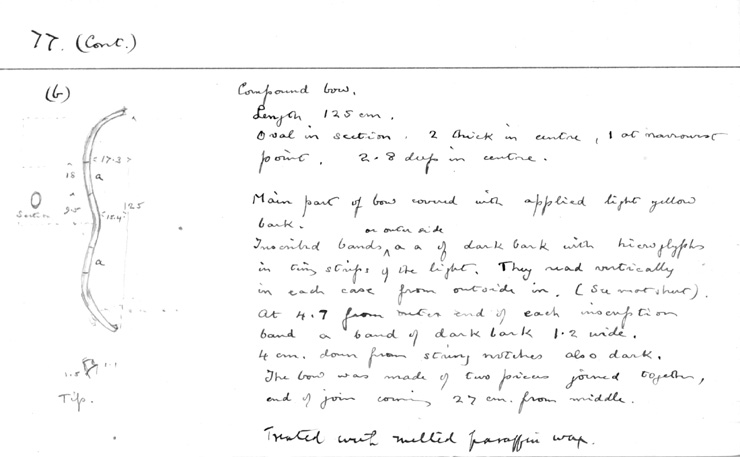 77. (Cont.)
(b)
Compound bow.
Length 125 cm.
Oval in section. 2 thick in centre, 1 at narrowest
point. 2.8 deep in centre.
Main part of bow covered with applied light yellow
bark.
or outer side
Inscribed bands, a a of dark bark with hieroglyphs
in tiny strips of the light. They read vertically
in each case from outside in. (See next sheet).
At 4.7 from outer end of each inscription
band a band of dark bark 1.2 wide.
4 cm. down from string notches also dark.
The bow was made of two pieces joined together,
end of join coming 27 cm. from middle.
Treated with melted paraffin wax.
17.3
18
a
125
Section
9.5
15.4
a
1.5
1.1
Tip.